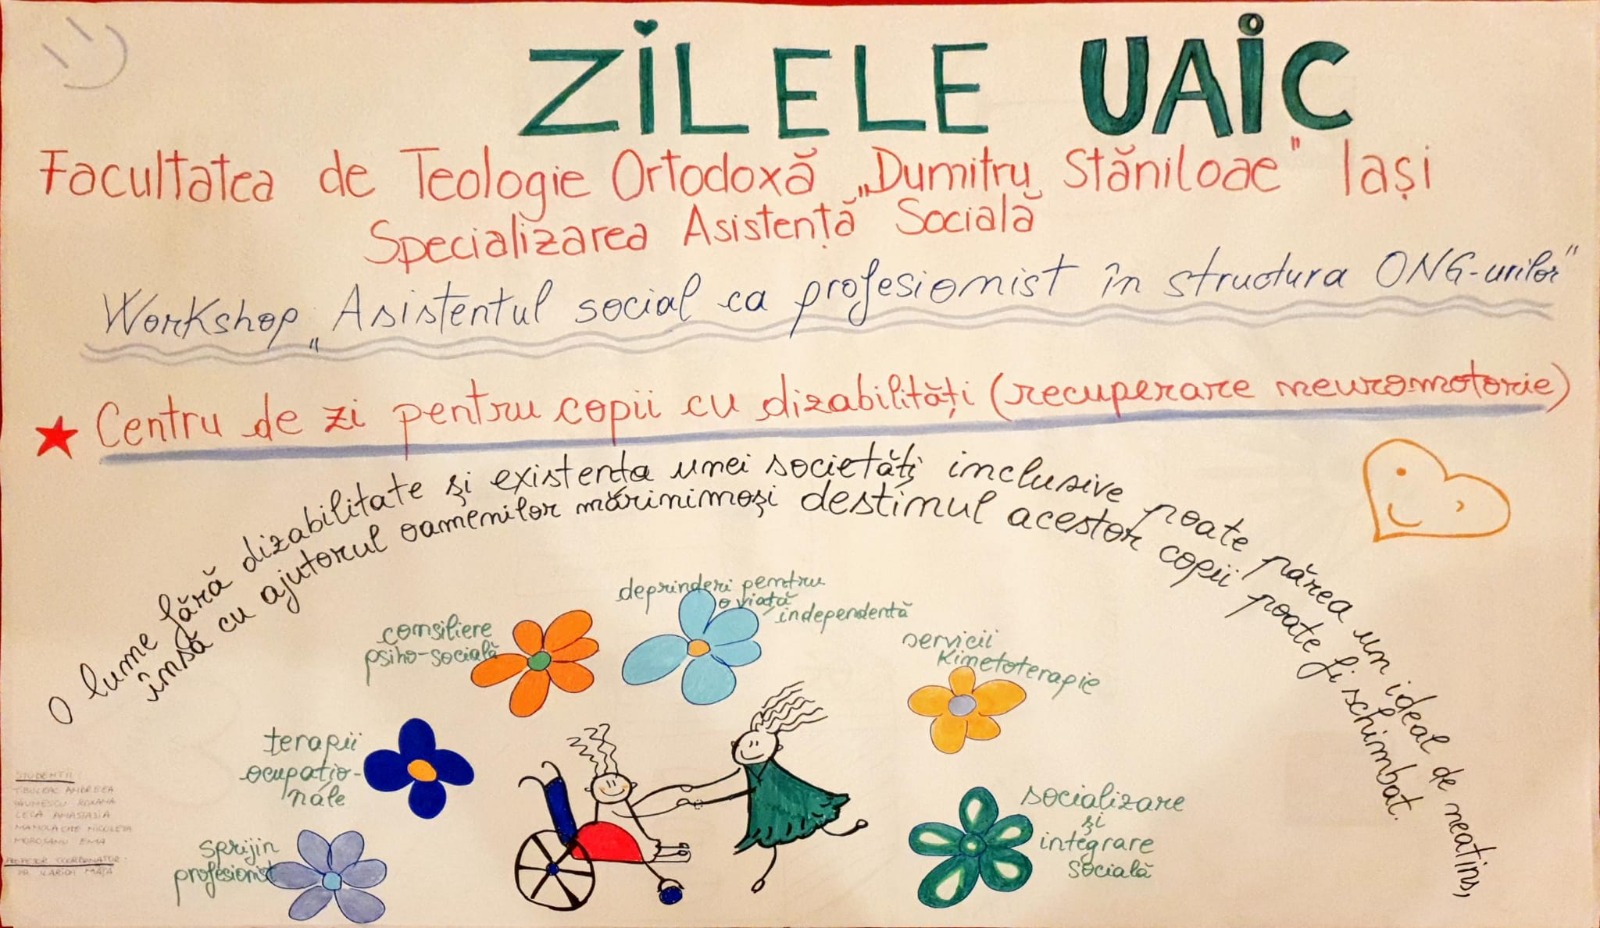 ZILELE UAIC
Facultatea de Teologie Ortodoxă „Dumitru Stăniloae" Iași
Specializarea Asistență Socială
Workshop „Asistentul social ca profesionist în structura ONG-urilor"
Centru de zi pentru copii cu dizabilități (recuperare neuromotorie)
O lume fără dizabilitate și existența unei societăți inclusive poate părea un ideal de neatins,
însă cu ajutorul oamenilor mărinimoși destinul acestor copii poate fi schimbat.
deprinderi pentru
o viață
independentă
consiliere
psiho-socială
servicii
kinetoterapie
terapii
ocupațio-
nale
socializare
și
integrare
socială
sprijin
profesionist
STUDENTII
ANDREEA
ROXANA
MANOLACHE NICOLETA
MOROSANU EMA
PROFESOR COORDONATOR: